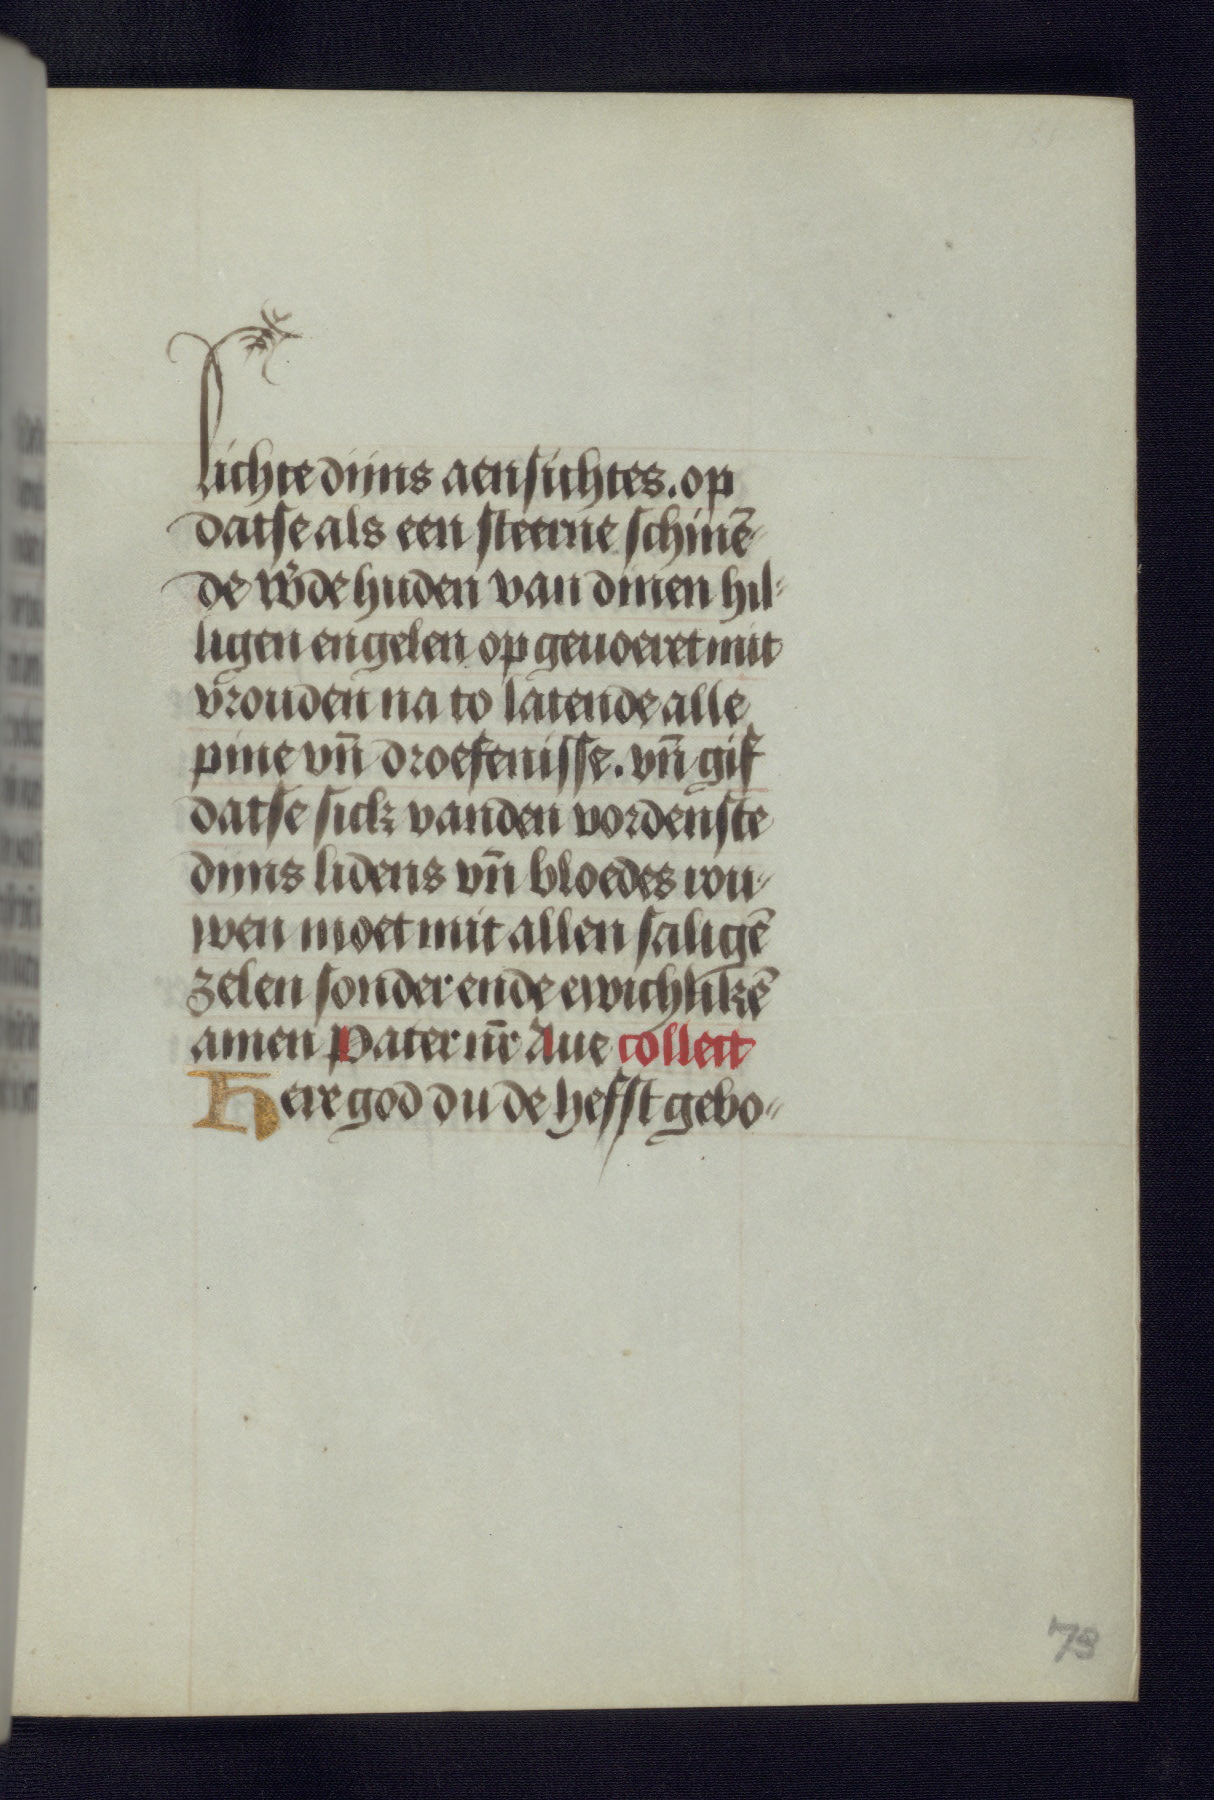 lichte dijns aensichtes. op
datse als een steerne schinē
de w̄de huden van dinen hil
ligen engelen op geuoeret mit
vrouden na to latende alle
pine vn̄ droefenisse. vn̄ gif
datse sick vanden vordenste
dijns lidens vn̄ bloedes vrou
wen moet mit allen saligē
zelen sonder ende ewichlikē
amen Pater nr̄ Aue collect
Here god du de hefst gebo
73